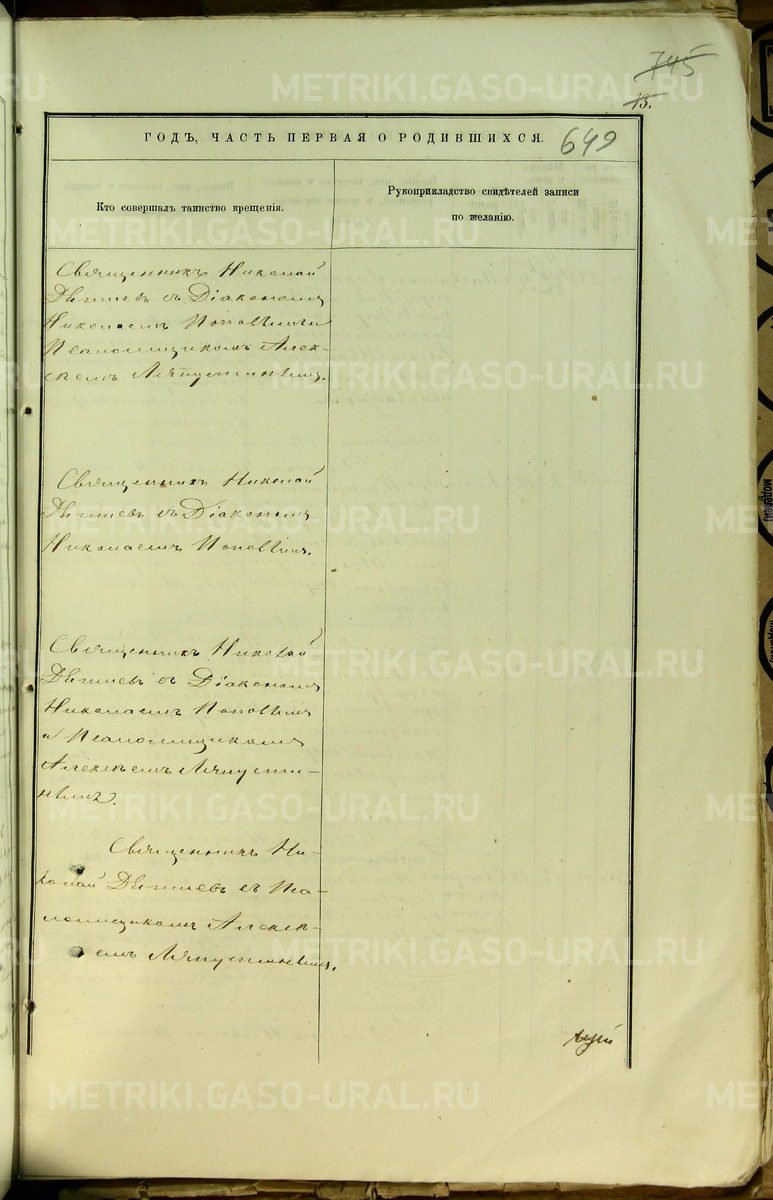 745
13.
649
ГОДЪ, ЧАСТЬ ПЕРВАЯ О РОДИВШИХСЯ.
Кто совершалъ таинство крещенія.
Рукоприкладство свидѣтелей записи
по желанію.
Священникъ Николай
съ Діакономъ
Николаемъ Поповымъ и
Псаломщикомъ Алек-
сѣемъ Ляпустинымъ.
Священникъ Николай
съ Діакономъ
Николаемъ Поповымъ.
Священникъ Николай
съ Діакономъ
Николаемъ Поповымъ
и Псаломщикомъ
Алексѣемъ Ляпусти-
нымъ.
Священникъ Ни-
колай съ Пса-
ломщикомъ Алексѣ-
емъ Ляпустинымъ.
METRIKI.GASO-URAL.RU